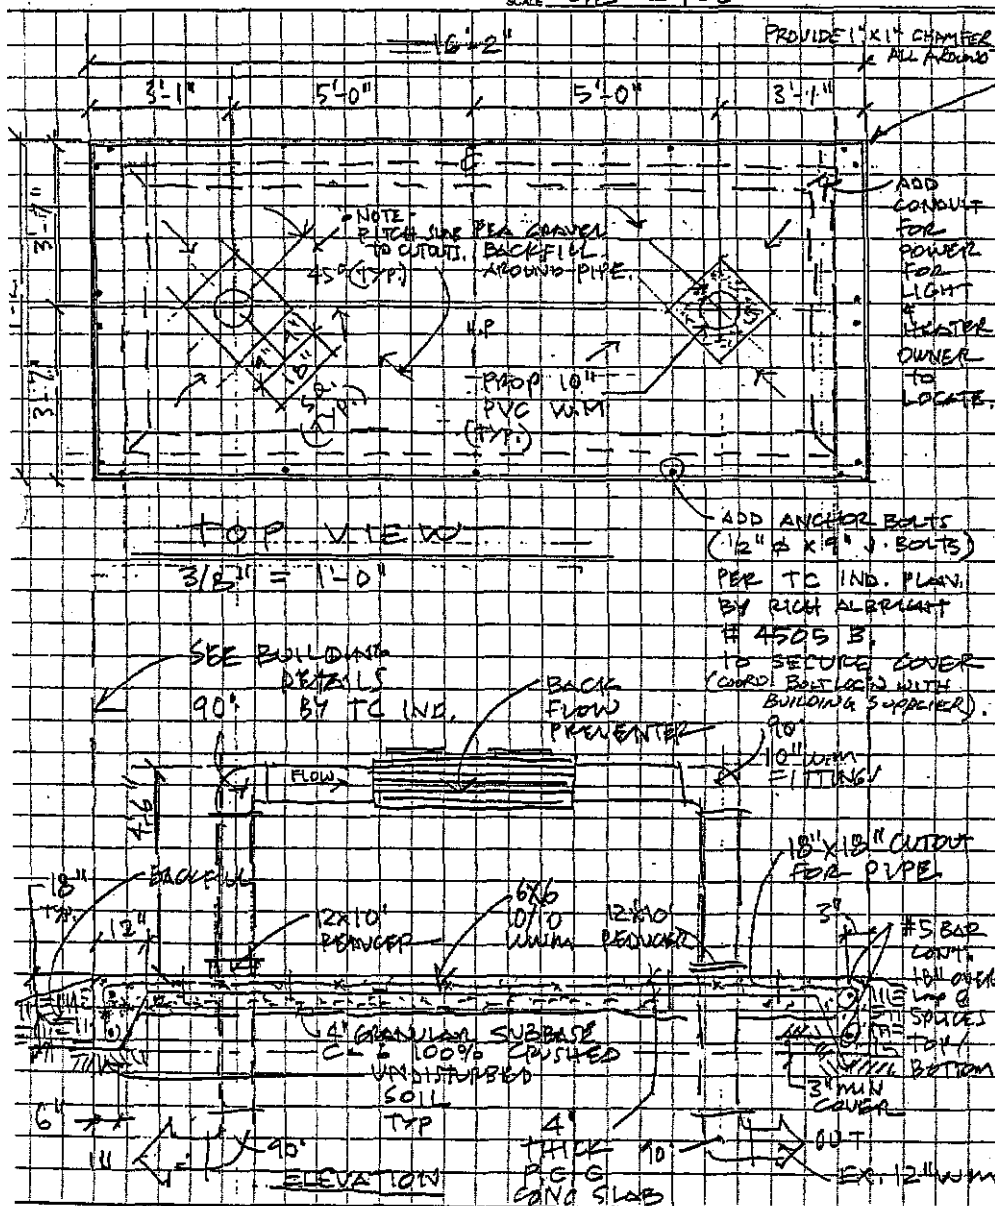 SCALE
16'-2"
PROVIDE 1" X 1" CHAMFER
ALL AROUND
3'-1"
5'-0"
5'-0"
3'-1"
3'-7"
3'-7"
NOTE-
PITCH SLAB
TO CUTOUTS.
45° (TYP.)
PEA GRAVEL
BACKFILL
AROUND PIPE.
H.P
9"
9"
18"
SQ.
(TYP.)
PROP 10"
PVC W.M
(TYP.)
ADD
CONDUIT
FOR
POWER
FOR
LIGHT
&
HEATER
OWNER
TO
LOCATE.
TOP VIEW
3/8" = 1'-0"
ADD ANCHOR BOLTS
(1/2" ø x 9" J. BOLTS)
PER TC IND. PLAN.
BY RICH ALBRIGHT
# 4505 B.
TO SECURE COVER
(COORD. BOLT LOC'N WITH
BUILDING SUPPLIER).
SEE BUILDING
DETAILS
BY TC IND.
90°
BACK
FLOW
PREVENTER
90°
10" WM
FITTING
FLOW
4'-6"
18"
TYP.
BACKFILL
12"
12x10
REDUCER
6x6
10/10
WWM
12x10
REDUCER
18" X 18" CUTOUT
FOR PIPE
3"
#5 BAR
CONT.
18" OVER
LAP @
SPLICES
TOP/
BOTTOM
3" MIN
COVER
4" GRANULAR SUBBASE
C-6 100% CRUSHED
UNDISTURBED
SOIL
TYP
6"
90°
ELEVATION
4"
THICK
P.C.C
CONC SLAB
90°
OUT
EX. 12" WM